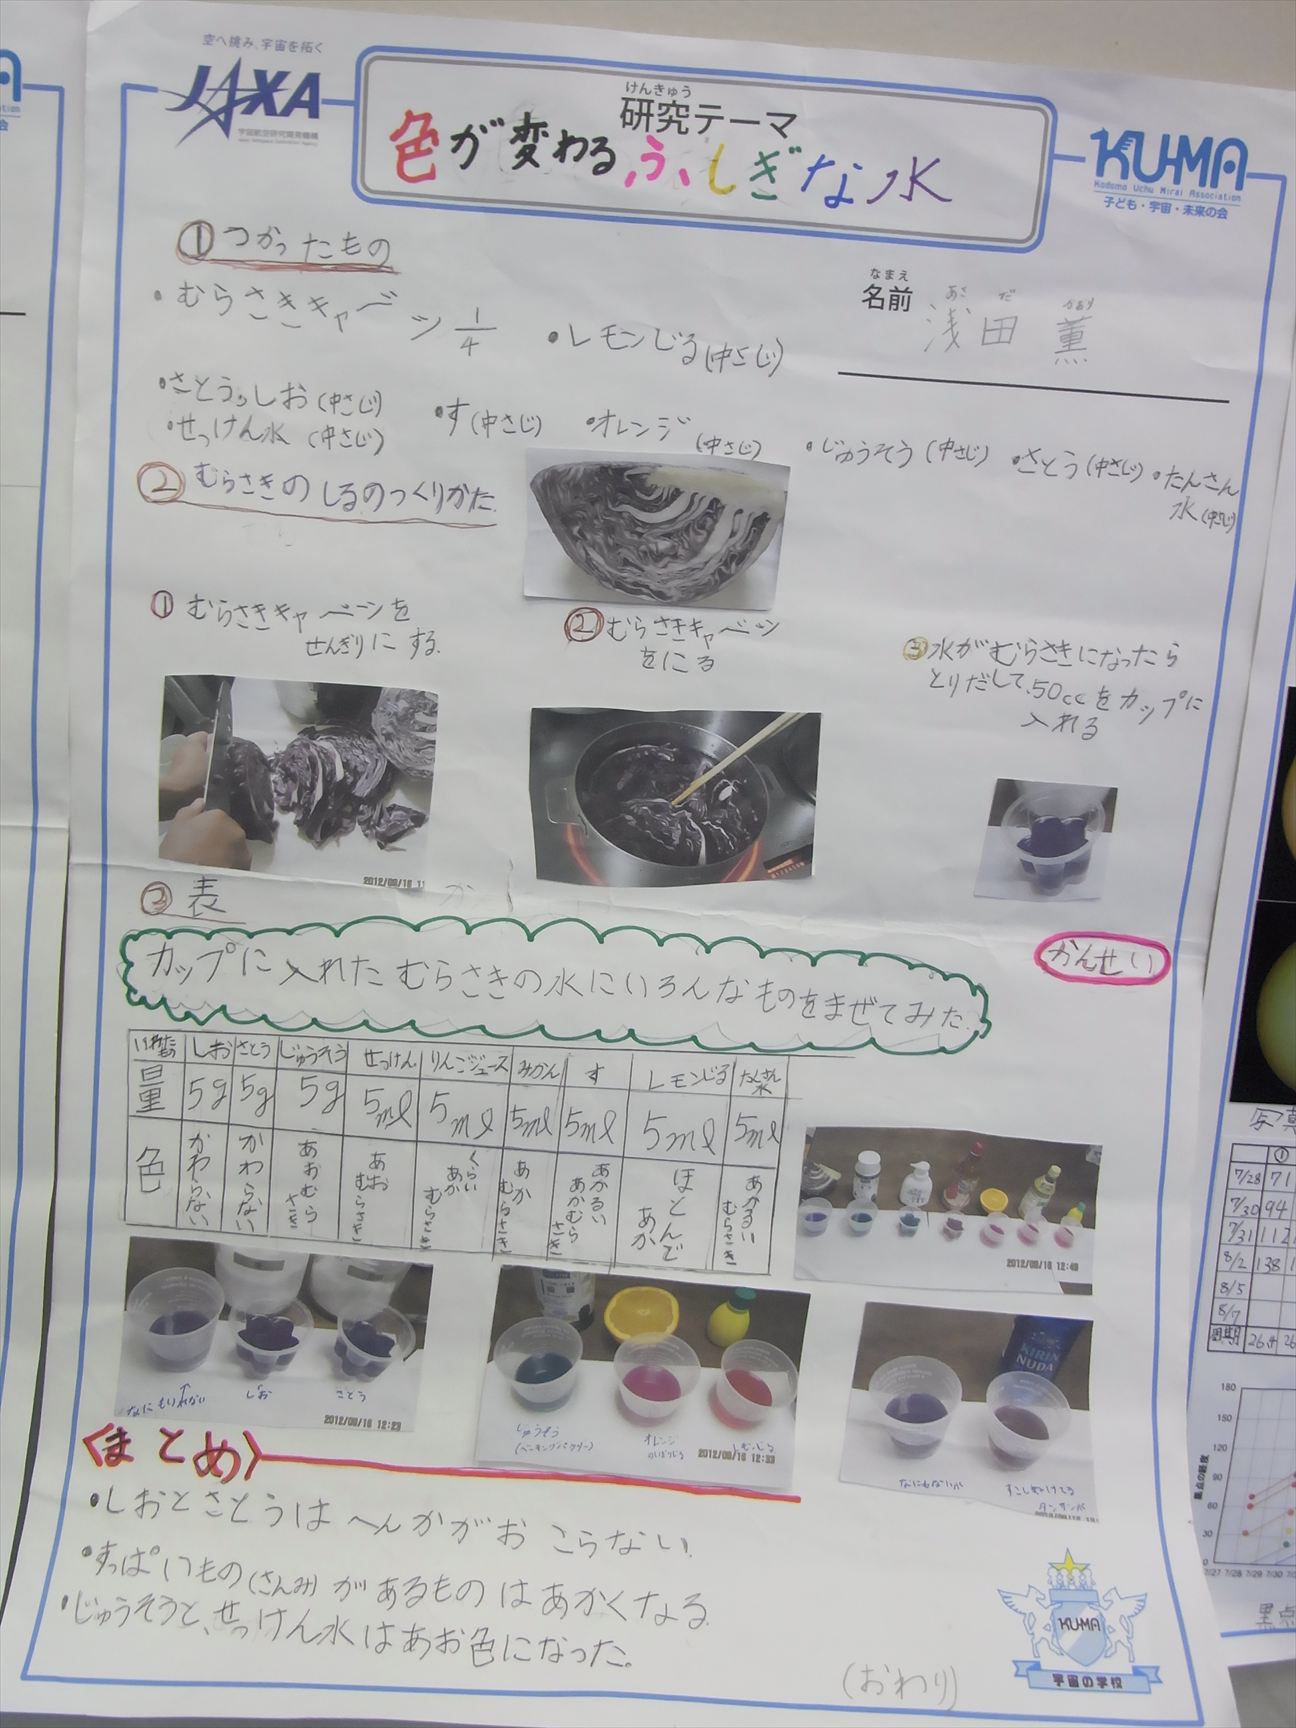 空へ挑み、宇宙を拓く
JAXA
宇宙航空研究開発機構
けんきゅう
研究テーマ
色が変わるふしぎな水
KU-MA
Kodomo Uchu Mirai Association
子ども・宇宙・未来の会
なまえ
名前
あさ だ かおり
浅田 薫
①つかったもの
・むらさきキャベツ 1/4
・レモンじる(中さじ)
・さとう,しお(中さじ)
・せっけん水(中さじ)
・す(中さじ)
・オレンジ(中さじ)
・じゅうそう(中さじ)
・さとう(中さじ)
・たんさん
水(中さじ)
②むらさきのしるのつくりかた
①むらさきキャベツを
せんぎりにする.
②むらさきキャベツ
をにる
③水がむらさきになったら
とりだして.50ccをカップに
入れる
2012/09/16 11
かんせい
③表
カップに入れたむらさきの水にいろんなものをまぜてみた.
しお さとう じゅうそう せっけん りんごジュース みかん す レモンじる たんさん水
量 5g 5g 5g 5ml 5ml 5ml 5ml 5ml 5ml
色 かわらない かわらない あおむらさき あおむらさき くらいあかむらさき あかむらさき あかるいあかむらさき ほとんどあか あかるいむらさき
2012/09/16 12:49
なにもいれない
しお
さとう
2012/09/16 12:23
じゅうそう
(ベーキングパウダー)
オレンジ
のしぼりじる
2012/09/16 12:33
KIRIN
NUDA
〈まとめ〉
・しおとさとうはへんかがおこらない.
・すっぱいもの(さんみ)があるものはあかくなる.
・じゅうそうと、せっけん水はあお色になった。
(おわり)
KU-MA
宇宙の学校
写真
①
7/28 71
7/30 94
7/31 112
8/2 138
8/5
8/7
周期
180
150
120
90
60
30
0
黒点の経度
7/27 7/28 7/29 7/30
黒点